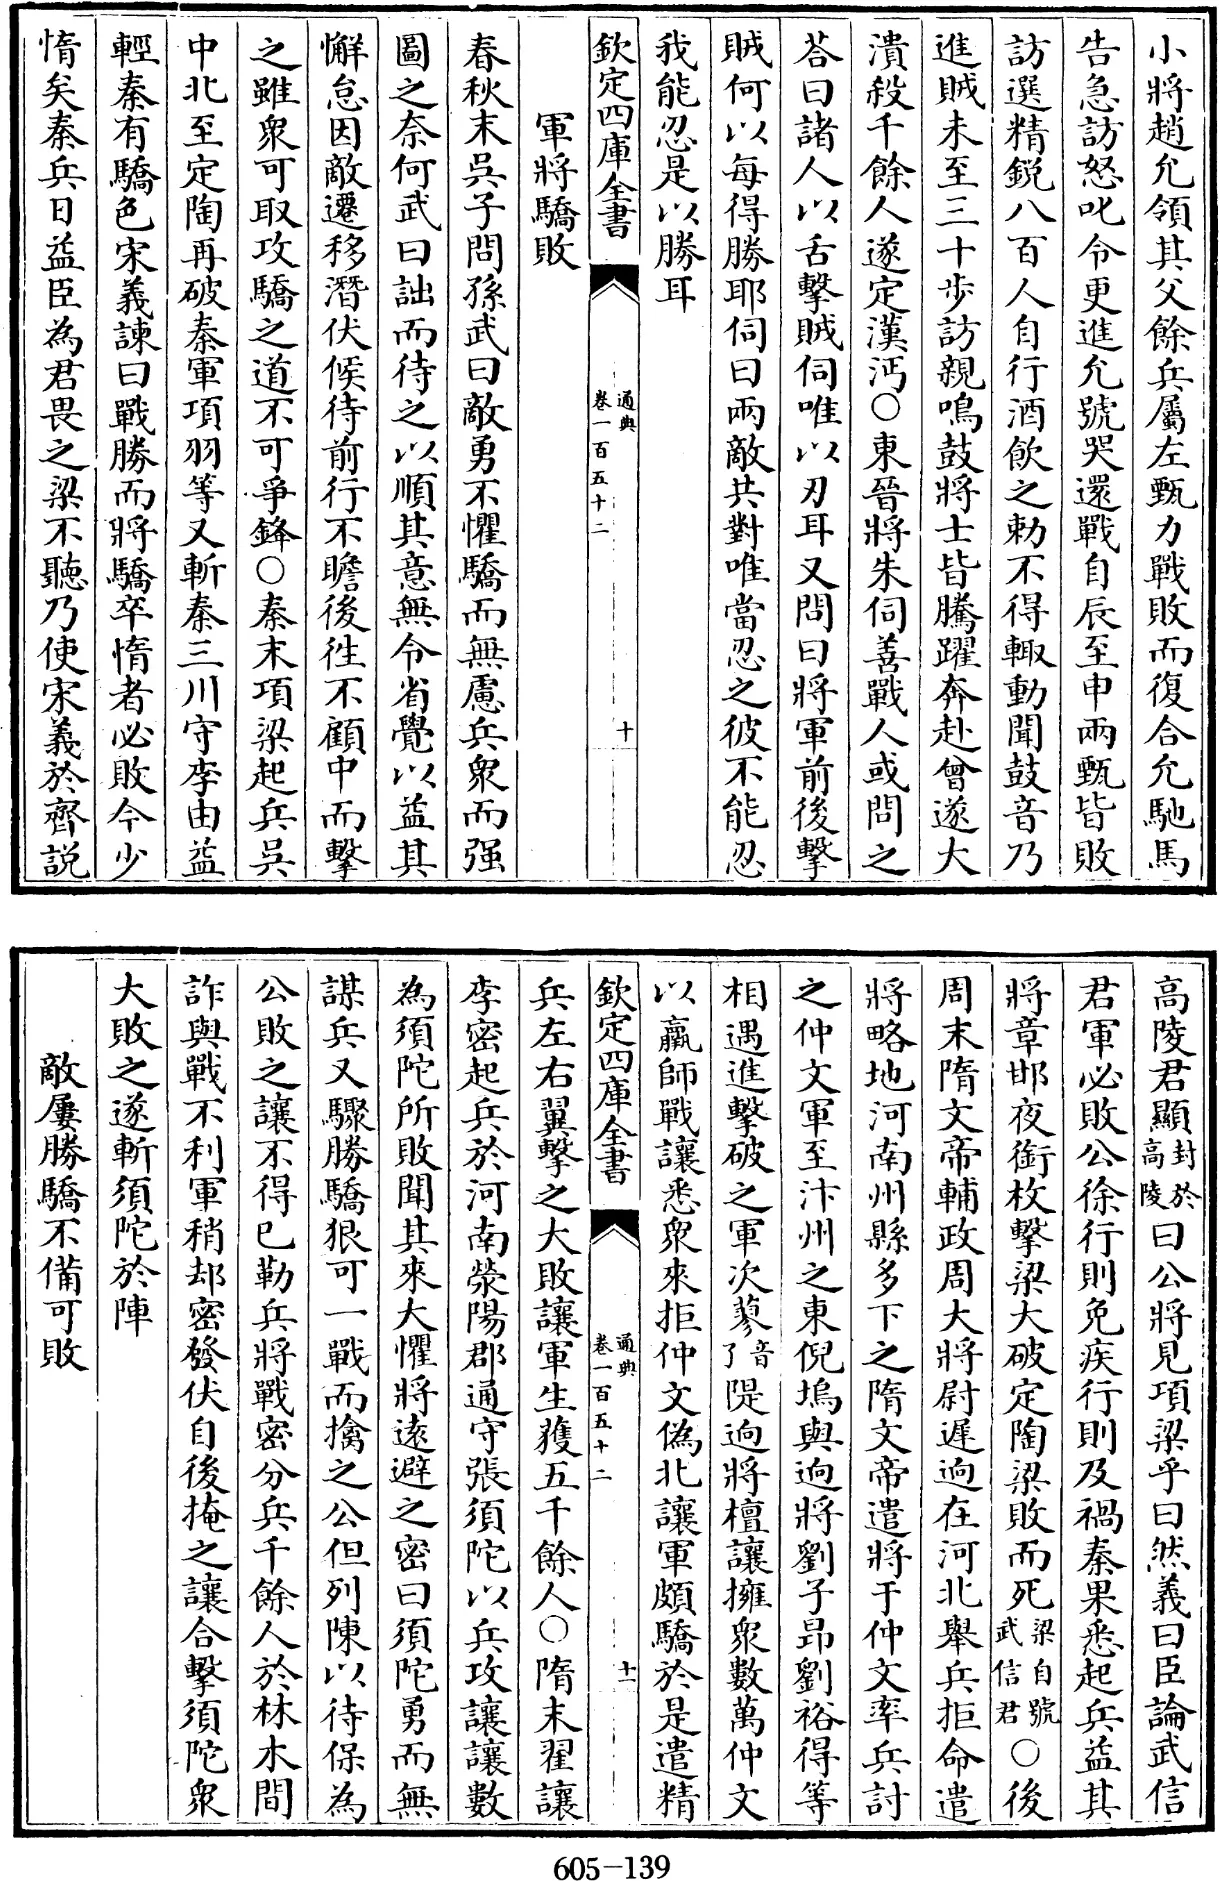 小將趙允領其父餘兵屬左甄力戰敗而復合允馳馬
告急訪怒叱令更進允號哭還戰自辰至申兩甄皆敗
訪選精鋭八百人自行酒飲之勅不得輙動聞鼓音乃
進賊未至三十步訪親鳴鼓將士皆騰躍奔赴曾遂大
潰殺千餘人遂定漢沔○東晉將朱伺善戰人或問之
荅曰諸人以舌擊賊伺唯以刃耳又問曰將軍前後擊
賊何以每得勝耶伺曰兩敵共對唯當忍之彼不能忍
我能忍是以勝耳
欽定四庫全書
通典
卷一百五十二
十
軍將驕敗
春秋末吳子問孫武曰敵勇不懼驕而無慮兵衆而强
圖之奈何武曰詘而待之以順其意無令省覺以益其
懈怠因敵遷移潛伏候待前行不瞻後徃不顧中而擊
之雖衆可取攻驕之道不可爭鋒○秦末項梁起兵吳
中北至定陶再破秦軍項羽等又斬秦三川守李由益
輕秦有驕色宋義諫曰戰勝而將驕卒惰者必敗今少
惰矣秦兵日益臣為君畏之梁不聽乃使宋義於齊説
高陵君顯封於高陵曰公將見項梁乎曰然義曰臣論武信
君軍必敗公徐行則免疾行則及禍秦果悉起兵益其
將章邯夜銜枚擊梁大破定陶梁敗而死梁自號武信君○後
周末隋文帝輔政周大將尉遲迥在河北舉兵拒命遣
將略地河南州縣多下之隋文帝遣將于仲文率兵討
之仲文軍至汴州之東倪塢與迥將劉子昻劉裕得等
相遇進擊破之軍次蓼音了隄迥將檀讓擁衆數萬仲文
以羸師戰讓悉衆來拒仲文偽北讓軍頗驕於是遣精
欽定四庫全書
通典
卷一百五十二
十一
兵左右翼擊之大敗讓軍生獲五千餘人○隋末翟讓
李密起兵於河南滎陽郡通守張須陀以兵攻讓讓數
為須陀所敗聞其來大懼將遠避之密曰須陀勇而無
謀兵又驟勝驕狠可一戰而擒之公但列陳以待保為
公敗之讓不得已勒兵將戰密分兵千餘人於林木間
詐與戰不利軍稍却密發伏自後掩之讓合擊須陀衆
大敗之遂斬須陀於陣
敵屢勝驕不備可敗
605-139